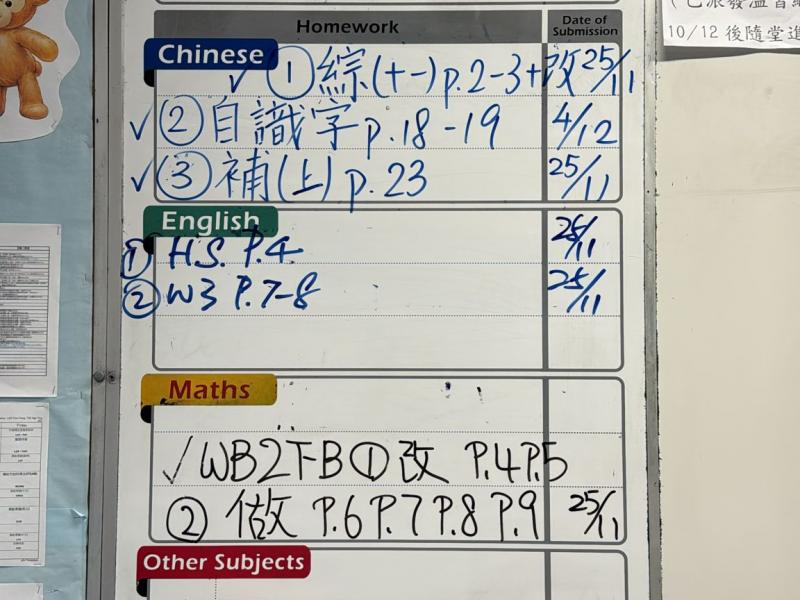 Homework Date of Submission
Chinese
✓ ① 綜(十一) p.2-3+改 25/11
✓ ② 自識字 p.18-19 4/12
✓ ③ 補(上) p.23 25/11
English
① H.S. P.4 25/11
② W3 P.7-8 25/11
Maths
✓ WB2下B ① 改 P.4 P.5
② 做 P.6 P.7 P.8 P.9 25/11
Other Subjects
10/12 後隨堂進